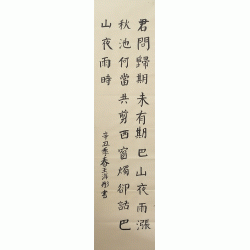 君問歸期未有期巴山夜雨漲
秋池何當共剪西窗燭卻話巴
山夜雨時
辛丑季春王
書